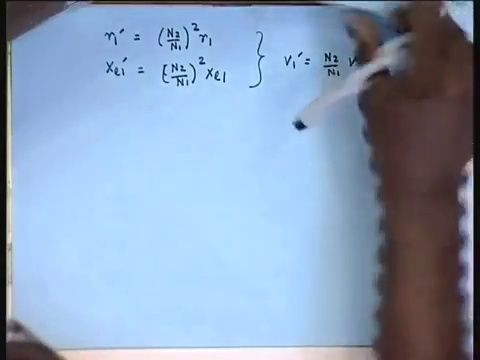 r₁′ = (N₂/N₁)² r₁
xₑ₁′ = [N₂/N₁)² xₑ₁ } V₁′ = N₂/N₁ V